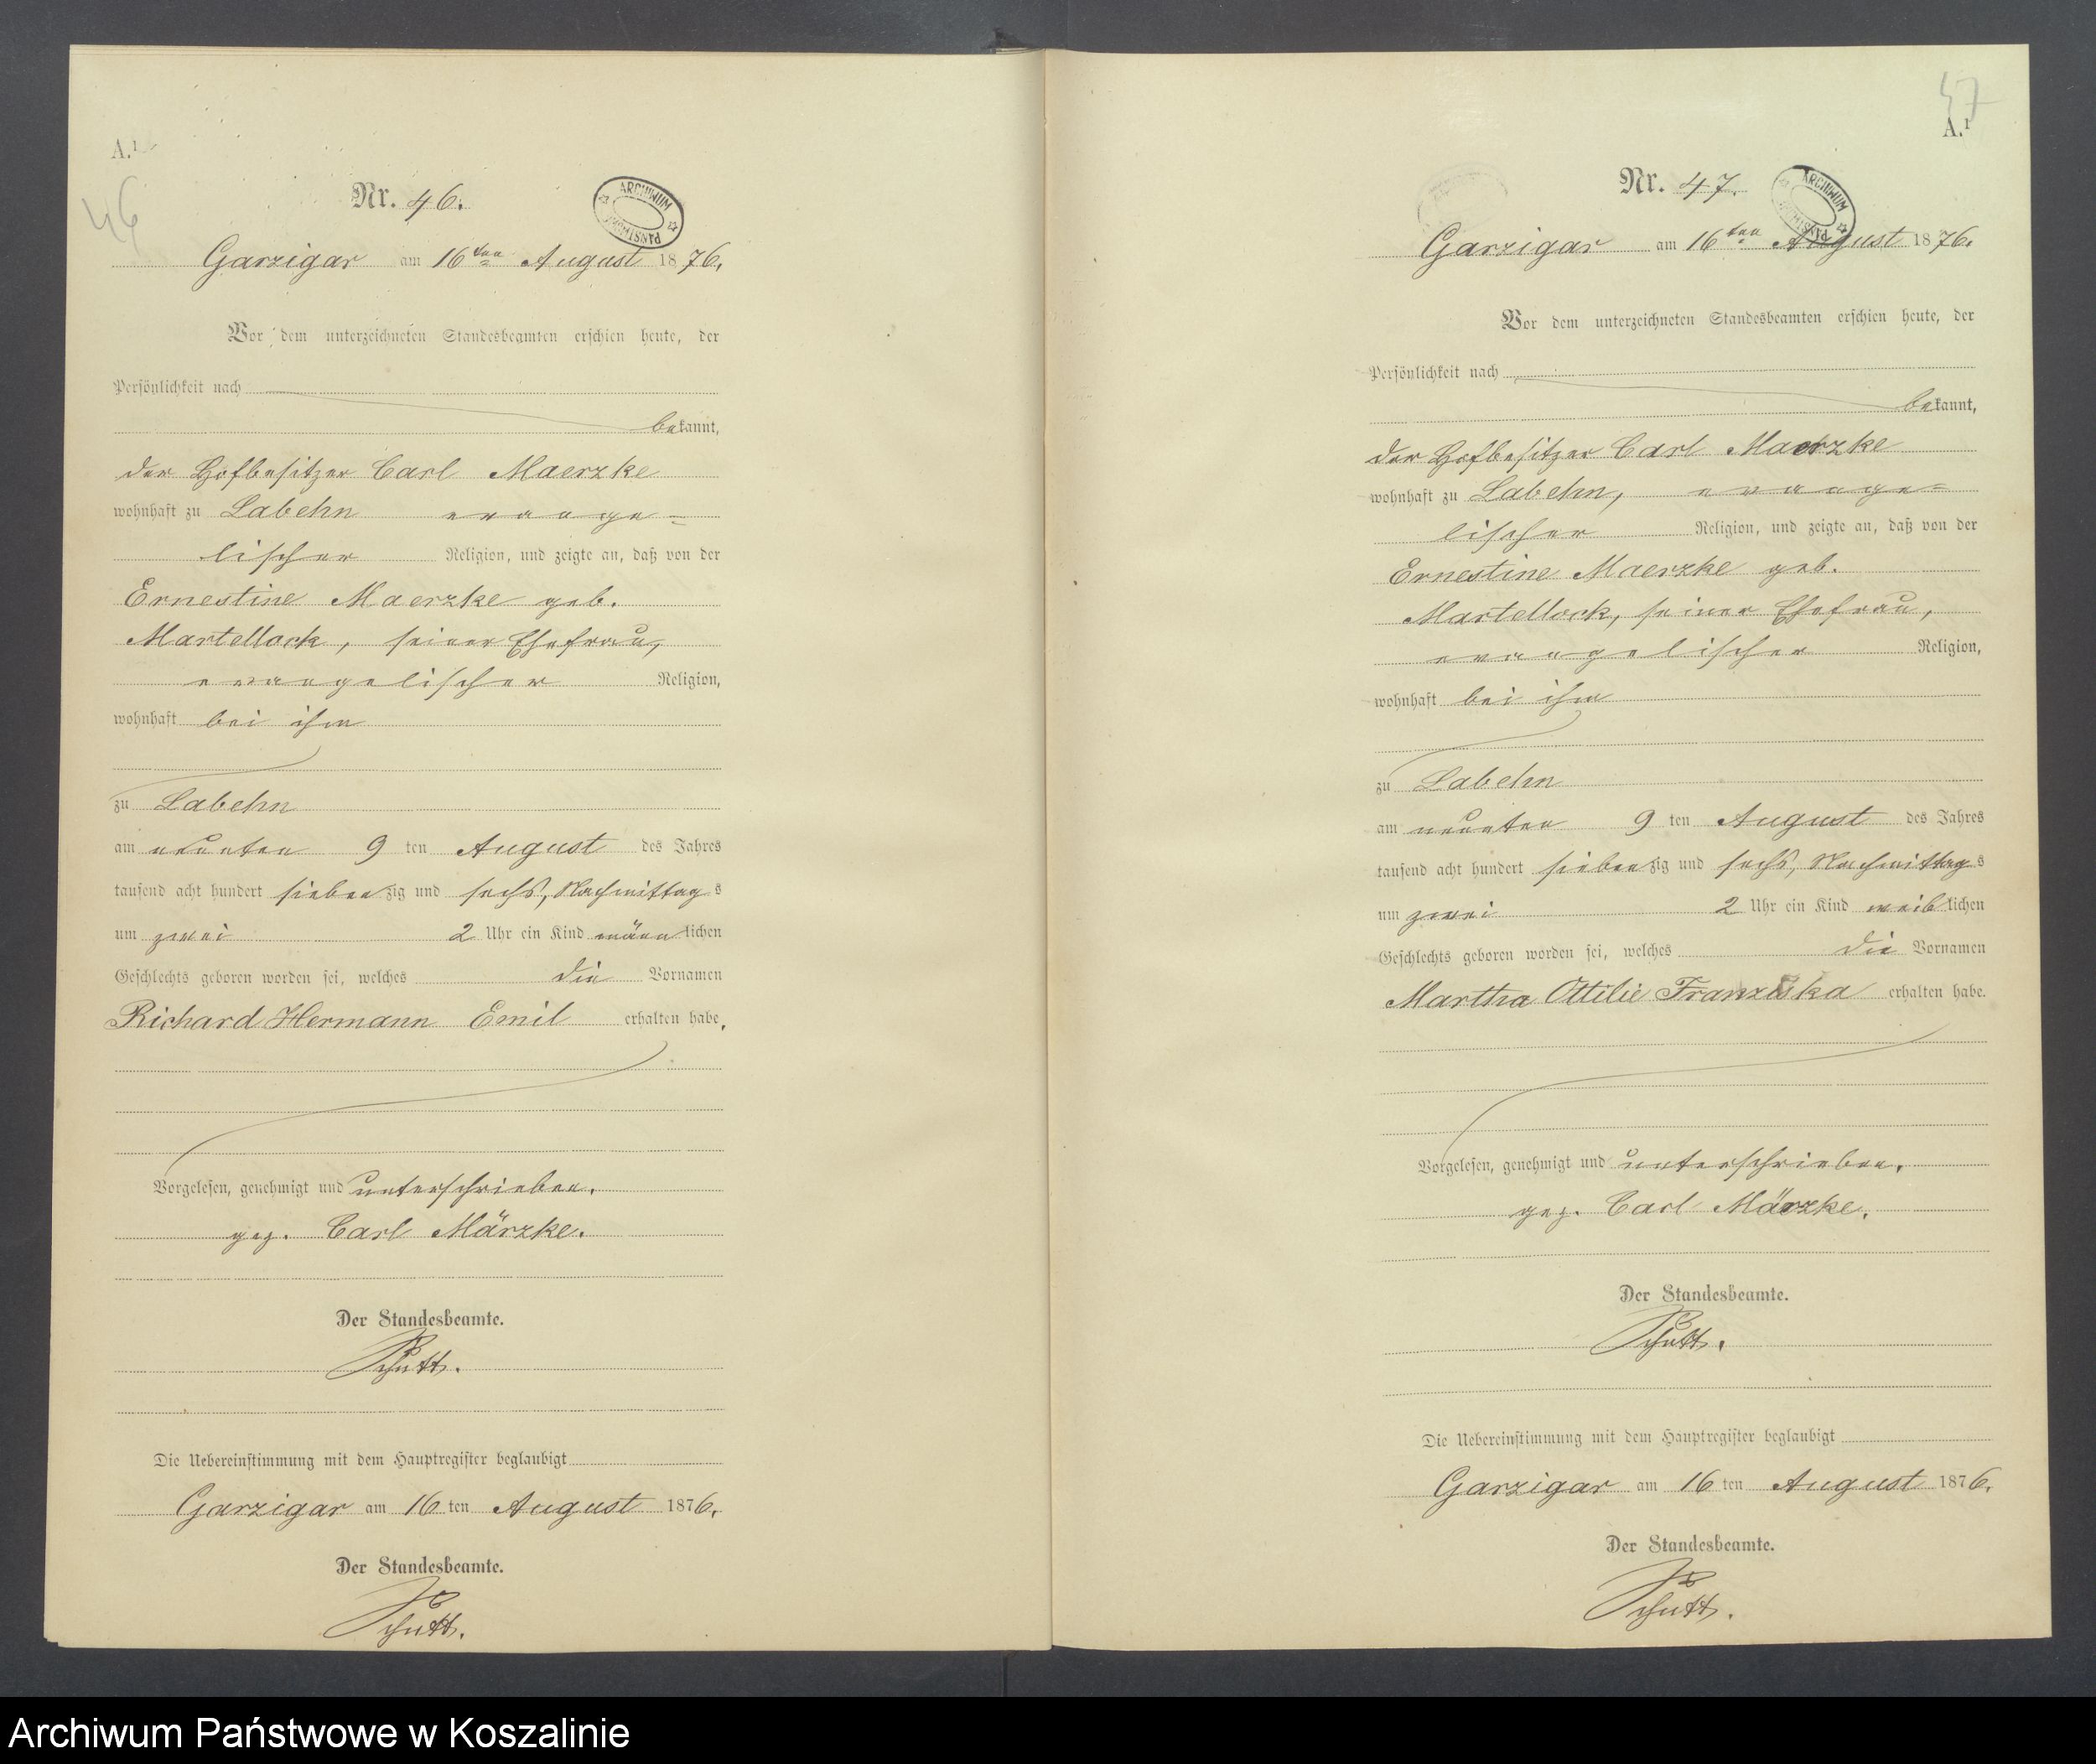 A.¹
46
Nr. 46.
ARCHIWUM PAŃSTWOWE
Garzigar am 16ten August 1876.
Vor dem unterzeichneten Standesbeamten erschien heute, der
Persönlichkeit nach
bekannt,
der Hofbesitzer Carl Maerzke
wohnhaft zu Labehn evange=
lischer Religion, und zeigte an, daß von der
Ernestine Maerzke geb.
Martellock, seiner Ehefrau,
evangelischer Religion,
wohnhaft bei ihm
zu Labehn
am neunten 9 ten August des Jahres
tausend acht hundert siebenzig und sechs, Nachmittags
um zwei 2 Uhr ein Kind männlichen
Geschlechts geboren worden sei, welches die Vornamen
Richard Hermann Emil erhalten habe.
Vorgelesen, genehmigt und unterschrieben.
gez. Carl Märzke.
Der Standesbeamte.
Schutt.
Die Uebereinstimmung mit dem Hauptregister beglaubigt
Garzigar am 16 ten August 1876.
Der Standesbeamte.
Schutt.
47
A.¹
Nr. 47.
ARCHIWUM PAŃSTWOWE
Garzigar am 16ten August 1876.
Vor dem unterzeichneten Standesbeamten erschien heute, der
Persönlichkeit nach
bekannt,
der Hofbesitzer Carl Maerzke
wohnhaft zu Labehn, evange=
lischer Religion, und zeigte an, daß von der
Ernestine Maerzke geb.
Martellock, seiner Ehefrau,
evangelischer Religion,
wohnhaft bei ihm
zu Labehn
am neunten 9 ten August des Jahres
tausend acht hundert siebenzig und sechs, Nachmittags
um zwei 2 Uhr ein Kind weiblichen
Geschlechts geboren worden sei, welches die Vornamen
Martha Ottilie Franziska erhalten habe.
Vorgelesen, genehmigt und unterschrieben.
gez. Carl Märzke.
Der Standesbeamte.
Schutt.
Die Uebereinstimmung mit dem Hauptregister beglaubigt
Garzigar am 16 ten August 1876.
Der Standesbeamte.
Schutt.
Archiwum Państwowe w Koszalinie